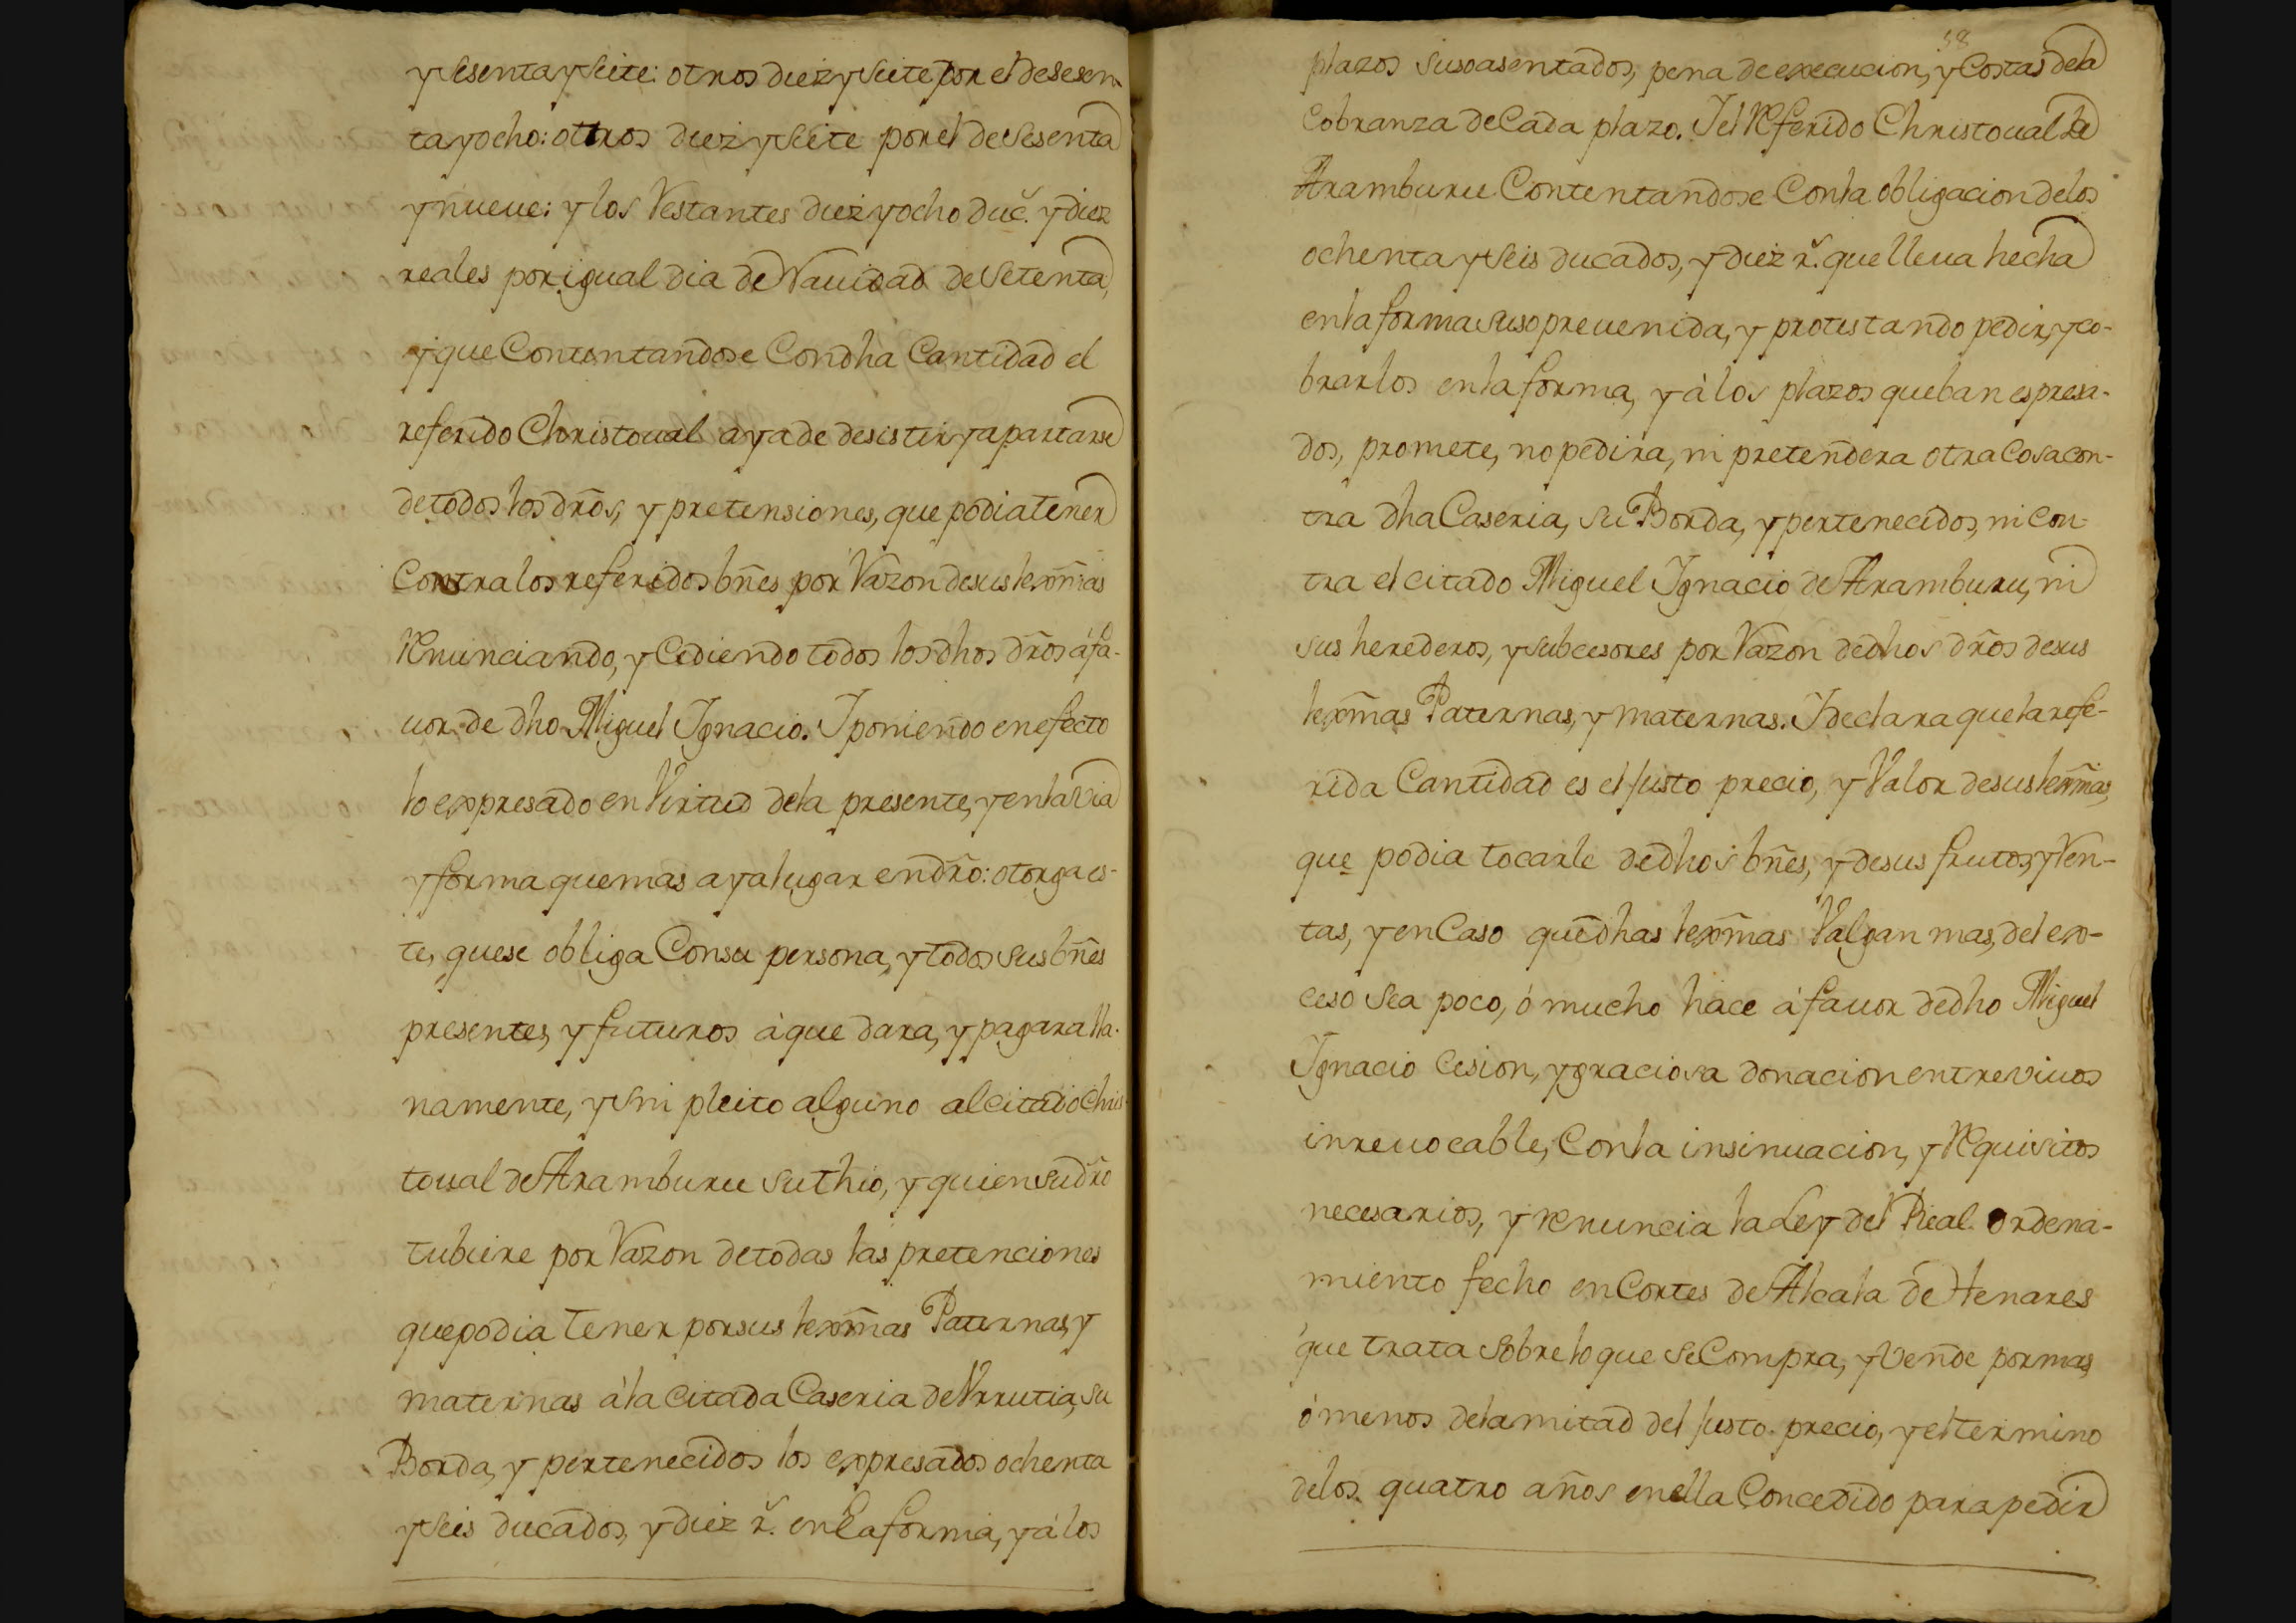 y sesenta y seite: otros diez y seite por el de sesen-
ta y ocho: ottros diez y seite por el de sesenta
y nueue: y los Restantes diez y ocho duc.ˢ y diez
reales por igual dia de Nauidad de setenta,
y que Contentandose Con dha Cantidad el
referido Christoual aya de desistir y apartarse
de todos los dr̃os, y pretensiones, que podia tener
Contra los referidos bñes por Razon de sus lexm̃as
Renunciando, y Cediendo todos los dhos dr̃os á fa-
uor de dho Miguel Ignacio. I poniendo en efecto
lo expresado en Virtud de la presente, y en la via
y forma que mas aya lugar en dr̃o: otorga es-
te, que se obliga Con su persona, y todos sus bñes
presentes, y futuros á que dara, y pagara lla-
namente, y sin pleito alguno al citado Chris-
toual de Aramburu su thio, y quien su dr̃o
tubiere por Razon de todas las pretenciones
que podia tener por sus lexm̃as Paternas, y
maternas á la citada Caseria de Vrrutia, su
Borda, y pertenecidos los expresados ochenta
y seis ducados, y diez r.ˢ en la forma, y á los
58
plazos suso asentados, pena de execucion, y Costas de la
Cobranza de Cada plazo. I el Referido Christoual de
Aramburu Contentandose Con la obligacion de los
ochenta y seis ducados, y diez r.ˢ que lleua hecha
en la forma suso preuenida, y protestando pedir, y co-
brarlos en la forma, y á los plazos que ban espresa-
dos, promete, no pedira, ni pretendera otra Cosa con-
tra dha Caseria, su Borda, y pertenecidos, ni Con-
tra el citado Miguel Ignacio de Aramburu, ni
sus herederos, y subcesores por Razon de dhos dr̃os de sus
lexm̃as Paternas, y maternas. I declara que la refe-
rida Cantidad es el Justo precio, y Valor de sus lexm̃as,
que podia tocarle de dhos bñes, y de sus frutos, y Ren-
tas, y en Caso que dhas lexm̃as Valgan mas, del ex-
ceso sea poco, ó mucho hace á fauor de dho Miguel
Ignacio Cesion, y graciosa donacion entre viuos
inreuocable, Con la insinuacion, y Requisitos
necesarios, y renuncia la Ley del Real ordena-
miento fecho en Cortes de Alcala de Henares
que trata sobre lo que se Compra, y Vende por mas,
ó menos de la mitad del Justo precio, y el termino
de los quatro años en ella Concedido para pedir